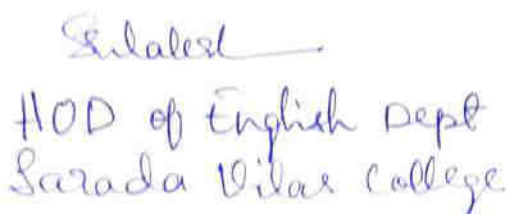 HOD of English Dept
Sarada Vilas College